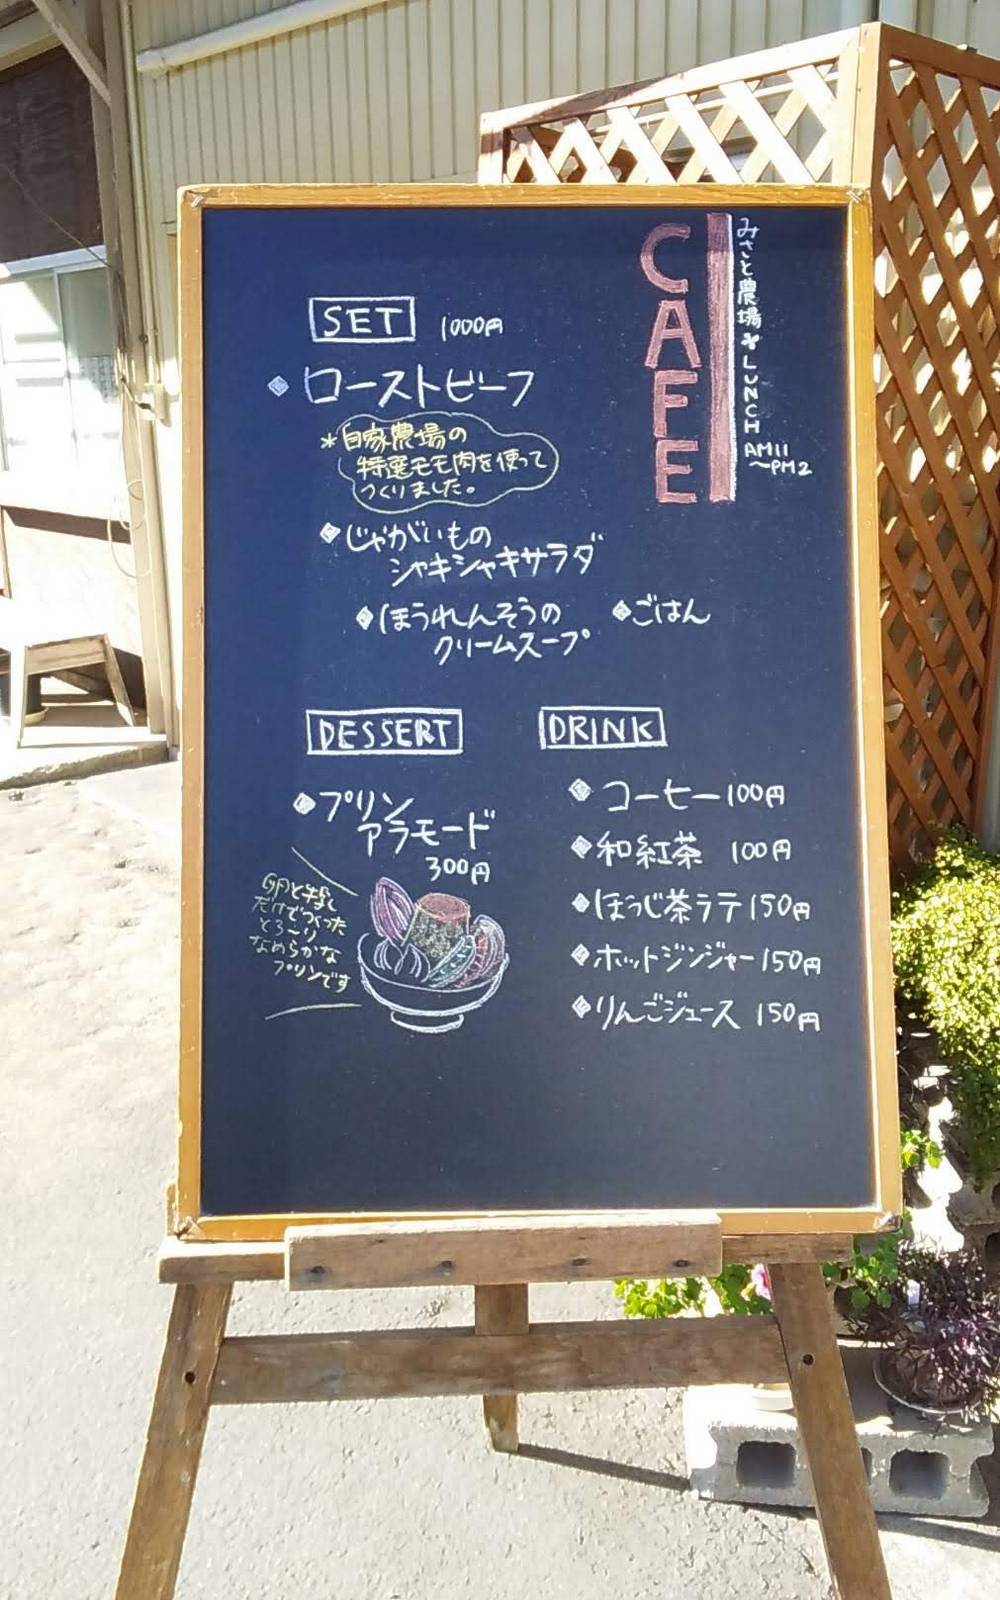 CAFE
みさと農場 LUNCH AM11
〜PM2
SET 1000円
ローストビーフ
*自家農場の
特選モモ肉を使って
つくりました。
じゃがいもの
シャキシャキサラダ
ほうれんそうの
クリームスープ
ごはん
DESSERT
プリン
アラモード
300円
卵と牛乳
だけでつくった
とろ〜り
なめらかな
プリンです
DRINK
コーヒー 100円
和紅茶 100円
ほうじ茶ラテ 150円
ホットジンジャー 150円
りんごジュース 150円